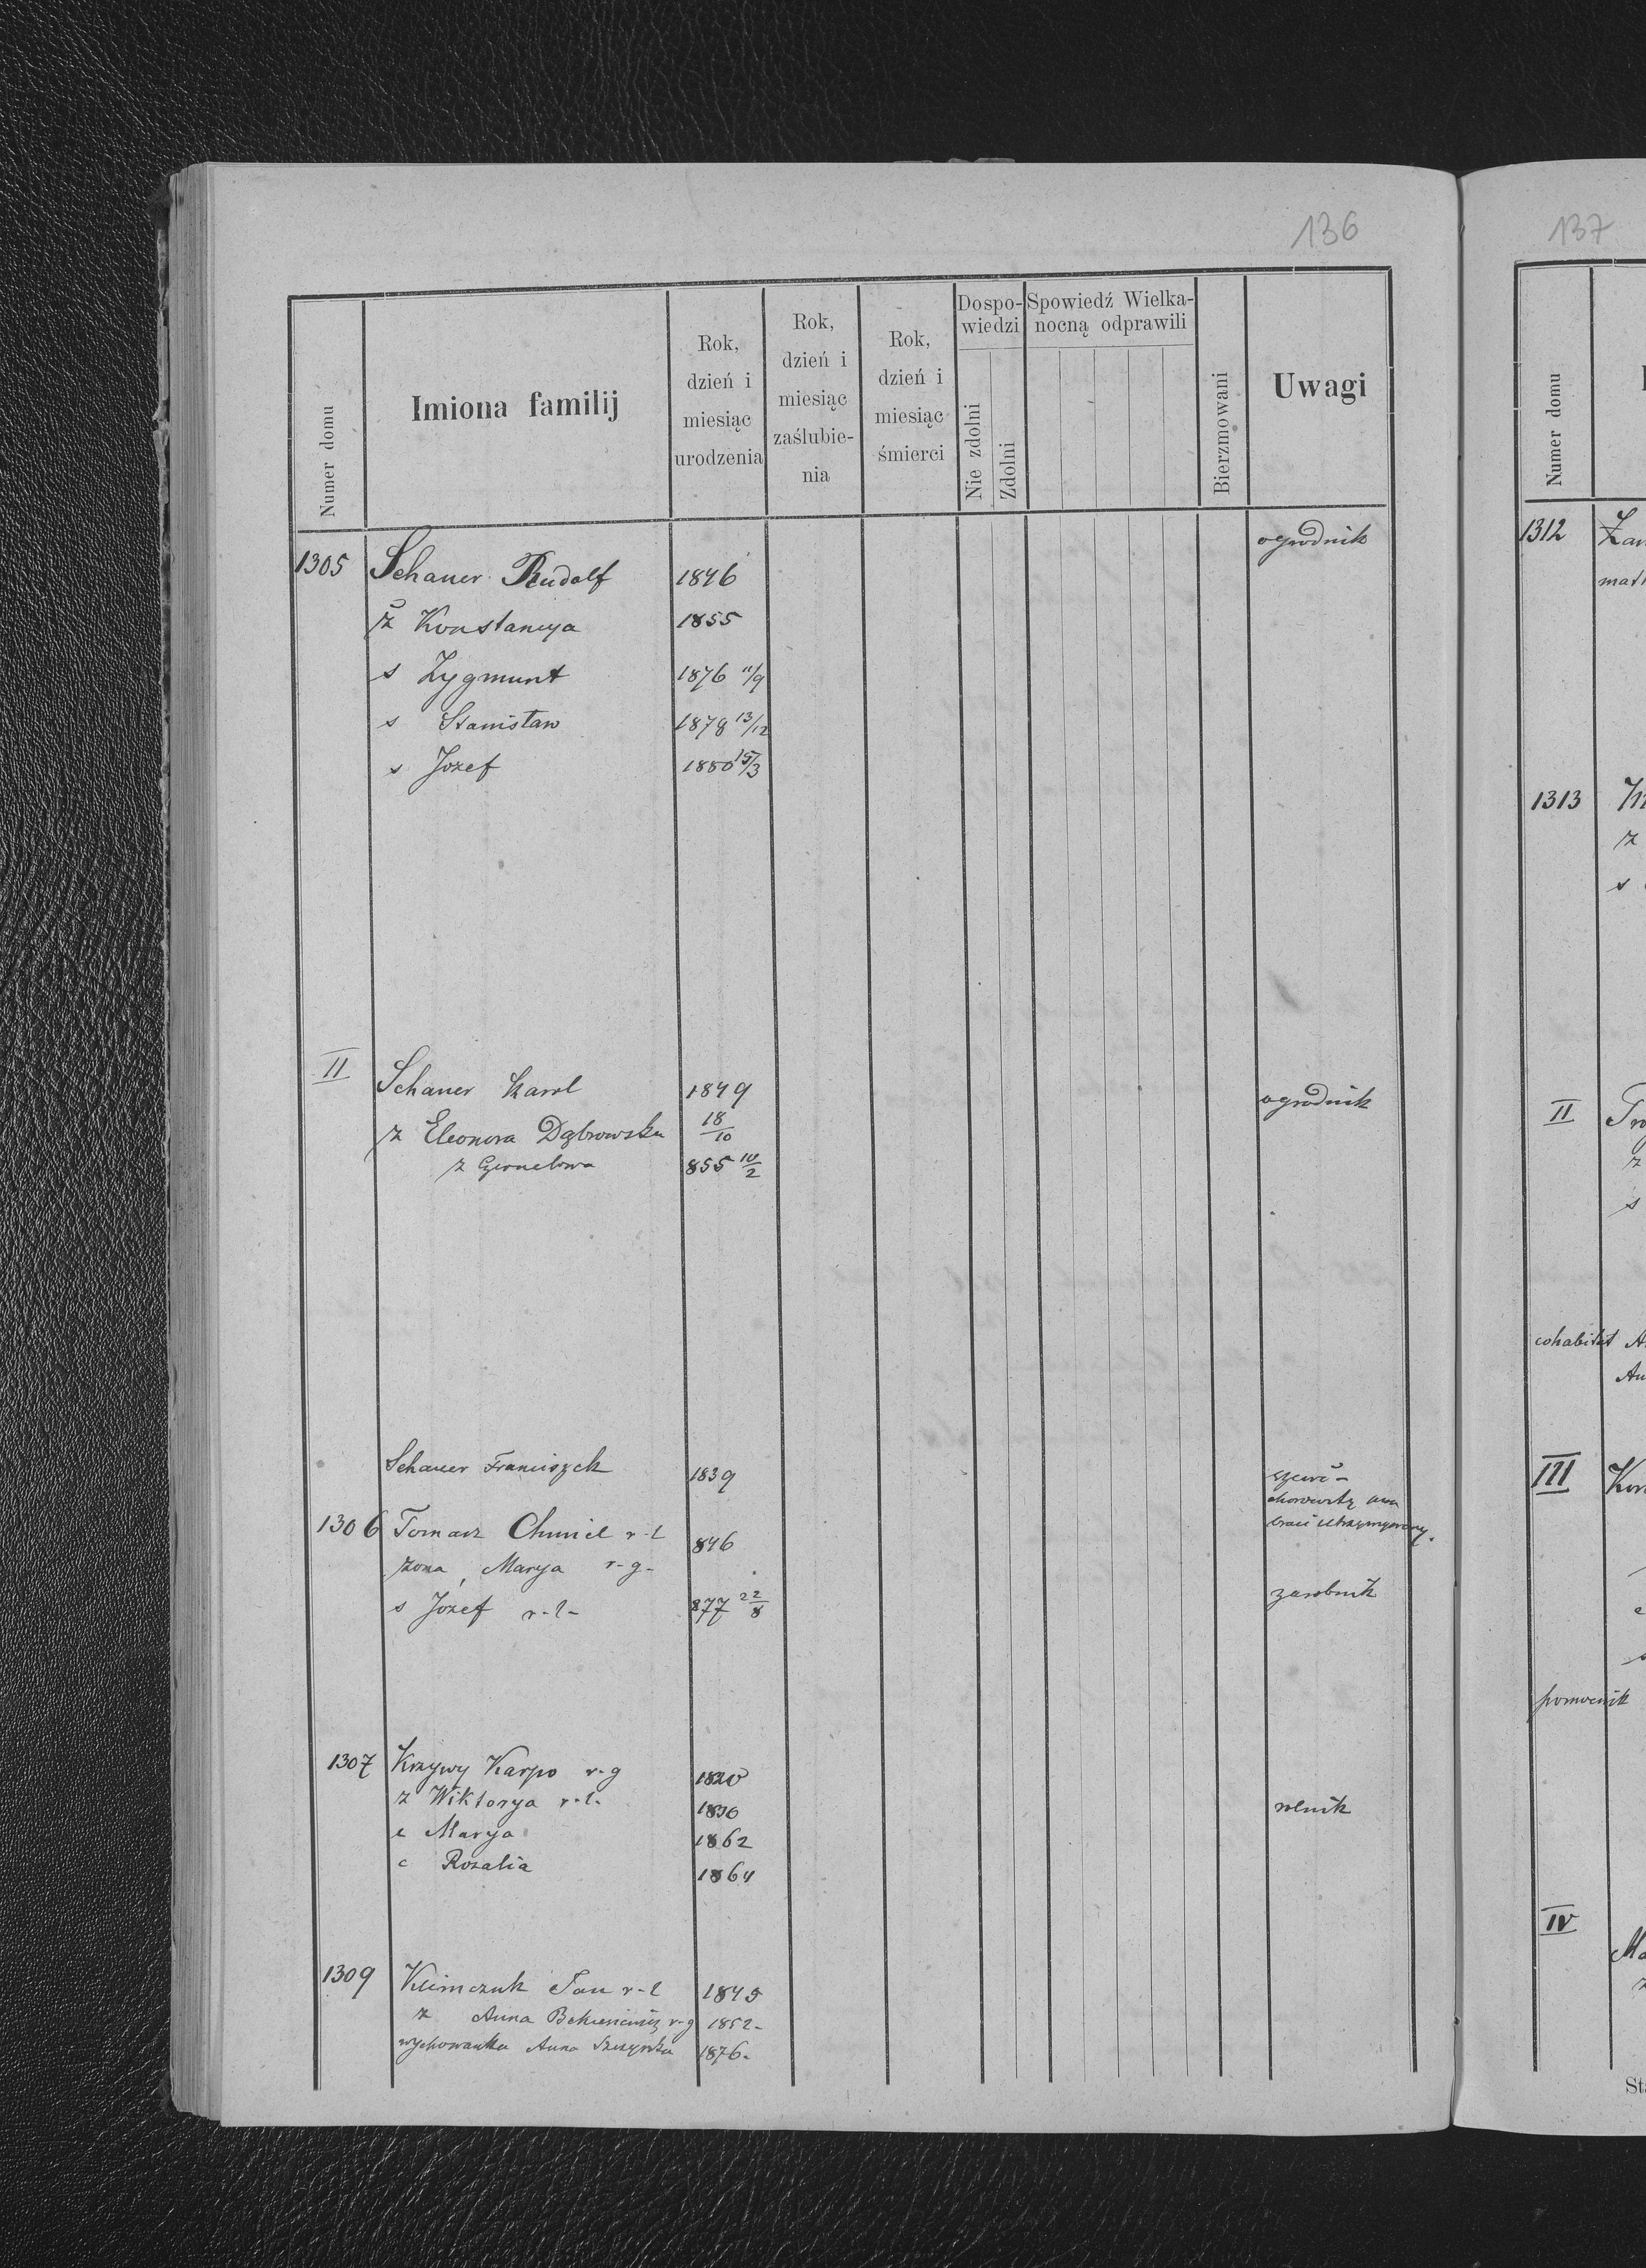 136
137
Numer domu
Imiona familij
Rok, dzień i miesiąc urodzenia
Rok, dzień i miesiąc zaślubienia
Rok, dzień i miesiąc śmierci
Dospowiedzi
Nie zdolni
Zdolni
Spowiedź Wielkanocną odprawili
Bierzmowani
Uwagi
Numer domu
1305 Schauer Rudolf 1846 ogrodnik
ż Konstancya 1855
s Zygmunt 1876 11/9
s Stanisław 1878 13/12
s Jozef 1880 15/3
II Schauer Karol 1849 ogrodnik
18/10
ż Eleonora Dąbrowska
z 855 10/2
Schauer Franciszek 1839
1306 Tomasz Chmiel r-l 846
żona, Marya r-g-
s Jozef r-l- 877 22/8 zarobnik
1307 Krzywy Karpo r-g 1820
ż Wiktorya r-l- 1830 rolnik
c Marya 1862
c Rozalia 1864
1309 Klimczuk Jan r-l 1845
ż Anna r-g 1852-
wychowanka Anna 1876-
1312
1313
ż
s
II
ż
s
cohabitat
III
pomocnik
IV